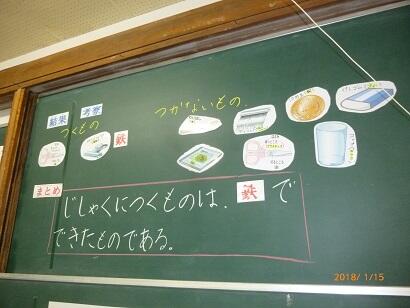 結果 考察
つくもの
つかないもの。
鉄
まとめ
じしゃくにつくものは、鉄で
できたものである。
2018/ 1/15